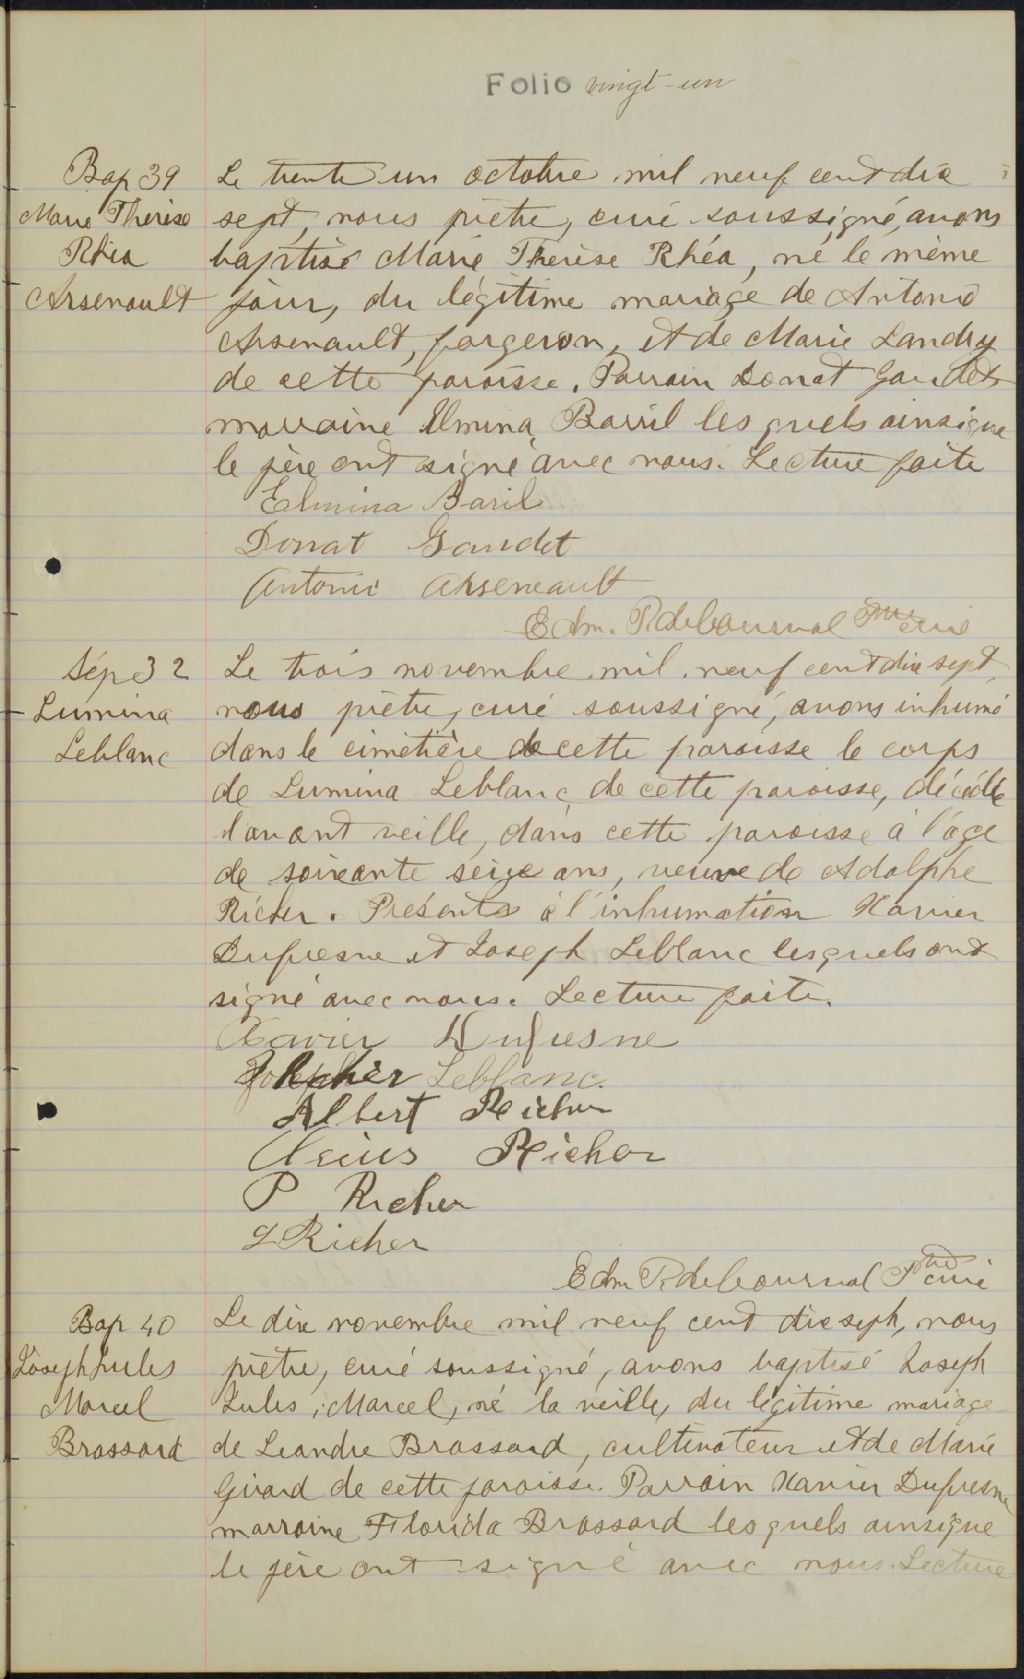 Folio vingt-un
Bap 39
Marie Thérèse
Rhéa
Arsenault
Le trente un octobre mil neuf cent dix
sept, nous prêtre, curé soussigné, avons
baptisé Marie Thérèse Rhéa, né le même
jour, du légitime mariage de Antonio
Arsenault, forgeron, et de Marie Landry
de cette paroisse. Parrain Donat Gaudet
marraine Elmina Barril lesquels ainsique
le père ont signé avec nous. Lecture faite
Elmina Baril
Donat Gaudet
Antonio Arseneault
Edm. P. de Courval Ptre curé
Sép 32
Lumina
Leblanc
Le trois novembre mil neuf cent dix sept,
nous prêtre, curé soussigné, avons inhumé
dans le cimetière de cette paroisse le corps
de Lumina Leblanc de cette paroisse, décédée
l'avant veille, dans cette paroisse à l'age
de soixante seize ans, veuve de Adolphe
Richer. Présents à l'inhumation Xavier
Dufresne et Joseph Leblanc lesquels ont
signé avec nous. Lecture faite.
Xavier Dufresne
Leblanc.
Albert Richer
Richer
P Richer
L Richer
Edm P. de Courval Ptre curé
Bap 40
Joseph Jules
Marcel
Brassard
Le dix novembre mil neuf cent dix sept, nous
prêtre, curé soussigné, avons baptisé Joseph
Jules, Marcel, né la veille, du légitime mariage
de Leandre Brassard, cultivateur et de Marie
Girard de cette paroisse. Parrain Xavier Dufresne
marraine Florida Brassard lesquels ainsique
le père ont signé avec nous. Lecture